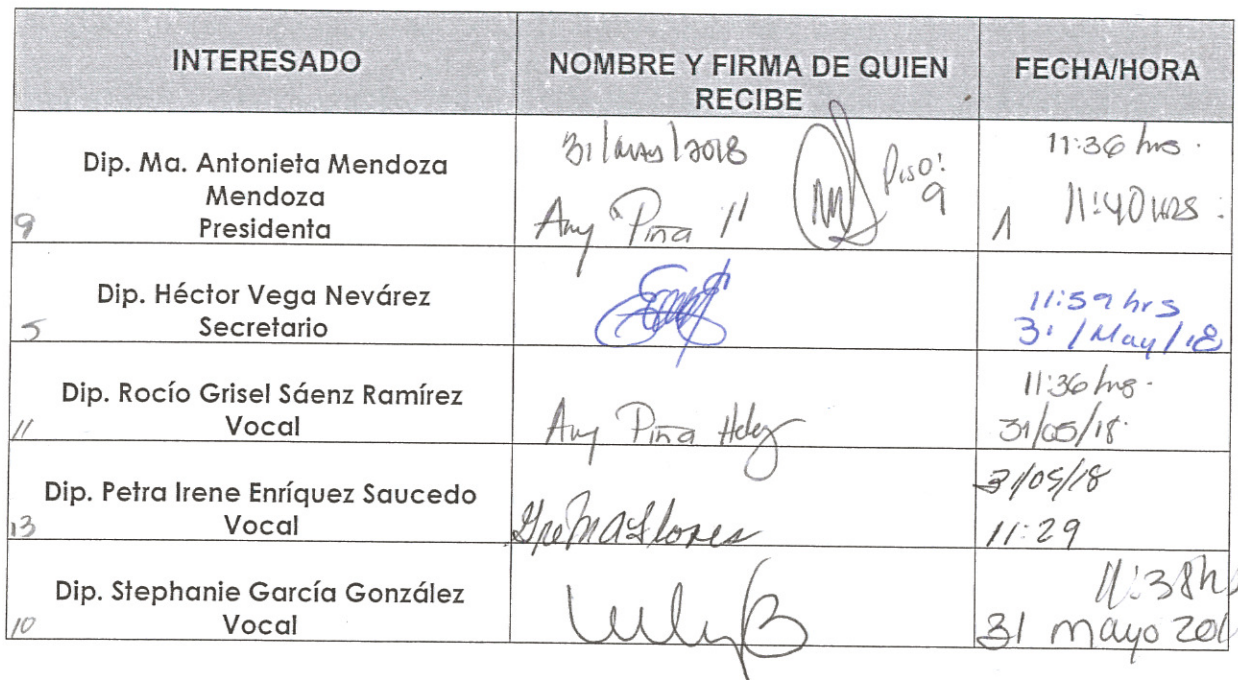 INTERESADO
NOMBRE Y FIRMA DE QUIEN
RECIBE
FECHA/HORA
Dip. Ma. Antonieta Mendoza
Mendoza
Presidenta
9
31/mayo/2018
Any Piña
Piso:
9
11:36 hrs.
11:40 hrs
Dip. Héctor Vega Nevárez
Secretario
5
11:59 hrs
31/May/18
Dip. Rocío Grisel Sáenz Ramírez
Vocal
11
Any Piña Hdez
11:36 hrs.
31/05/18.
Dip. Petra Irene Enríquez Saucedo
Vocal
13
31/05/18
11:29
Dip. Stephanie García González
Vocal
10
11:38h
31 mayo 201